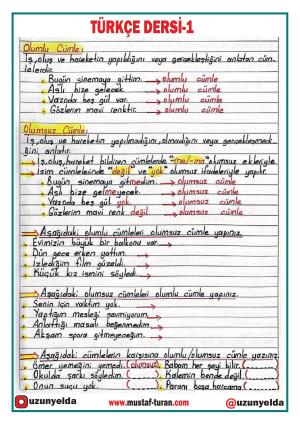 TÜRKÇE DERSİ-1
Olumlu Cümle:
İş, oluş ve hareketin yapıldığını veya gerçekleştiğini anlatan cüm-
lelerdir.
Bugün sinemaya gittim. → olumlu cümle
Aslı bize gelecek. → olumlu cümle
Vazoda beş gül var. → olumlu cümle
Gözlerim mavi renktir. → olumlu cümle
Olumsuz Cümle:
İş, oluş ve hareketin yapılmadığını, olmadığını veya gerçekleşmedi-
ğini anlatır.
İş, oluş, hareket bildiren cümlelerde "me/-ma" olumsuz ekleriyle
İsim cümlelerinde "değil" ve "yok" olumsuz ifadeleriyle yapılır.
Bugün sinemaya gitmedim. → olumsuz cümle
Aslı bize gelmeyecek. → olumsuz cümle
Vazoda beş gül yok. → olumsuz cümle
Gözlerim mavi renk değil → olumsuz cümle
Aşağıdaki olumlu cümleleri olumsuz cümle yapınız.
Evimizin büyük bir balkonu var. →
Dün gece erken yattım. →
İzlediğim film güzeldi. →
Küçük kız ismini söyledi. →
Aşağıdaki olumsuz cümleleri olumlu cümle yapınız.
Senin için vaktim yok. →
Yaptığım mesleği sevmiyorum. →
Anlattığı masalı beğenmedim. →
Akşam spora gitmeyeceğim. →
Aşağıdaki cümlelerin karşısına olumlu/olumsuz cümle yazınız.
Ömer yemeğini yemedi. (olumsuz) Babam her şeyi bilir. ( )
Okulda şarkı söyledim. ( ) Kalemin bende değil. ( )
Onun suçu yok. ( ) Paranı boşa harcama ( )
uzunyelda www.mustaf-turan.com @uzunyelda